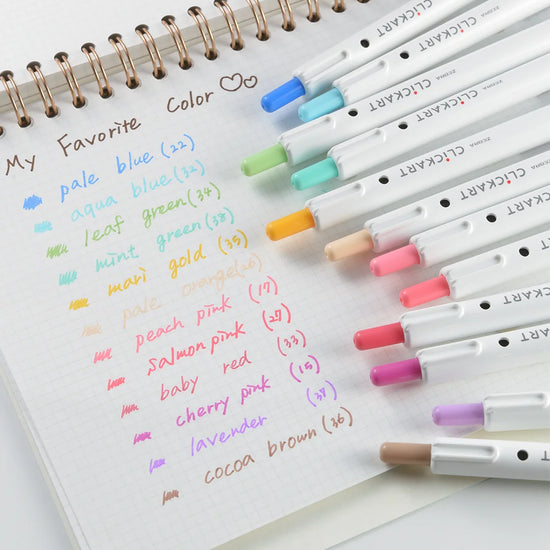 My Favorite Color
pale blue (22)
aqua blue (32)
leaf green (34)
mint green (38)
mari gold (35)
pale orange (26)
peach pink (17)
salmon pink (27)
baby red (33)
cherry pink (15)
lavender (37)
cocoa brown (36)
CLICKART
ZEBRA CLICKART
ZEBRA CLICKART
CLICKART
ZEBRA CLICKART
ZEBRA CLICKART
CLICKART
CLICKART